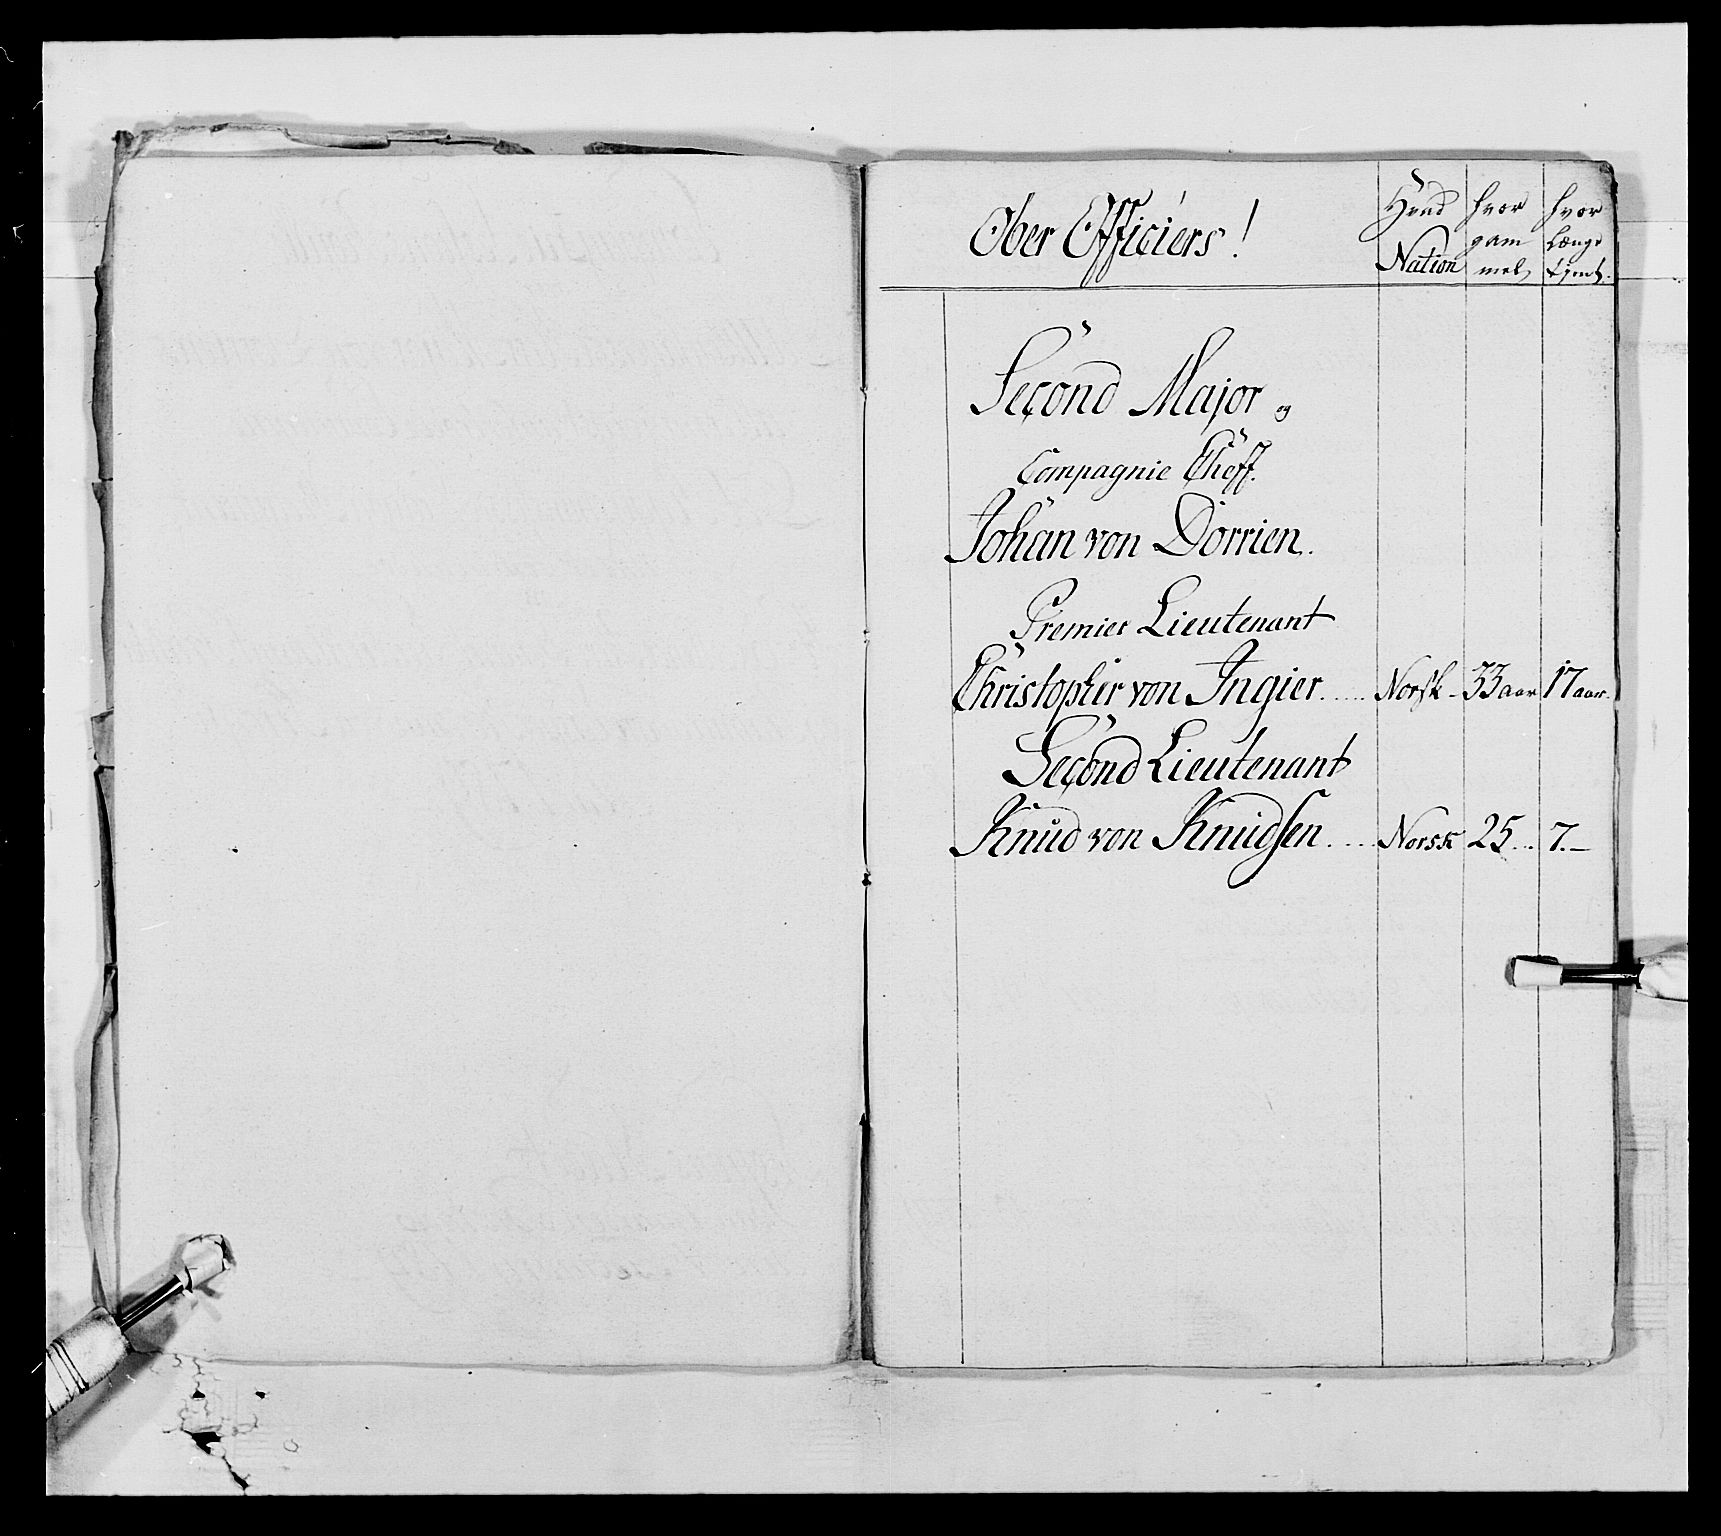 Ober Officiérs!
Hvad Nation
hvor gam mel
hvor Længe tjent.
Second Major og
Compagnie Cheff.
Johan von Dorrien.
Premier Lieutenant
Christopher von Ingier..... Norsk - 33 aar 17 aar.
Second Lieutenant
Knud von Knudsen.... Norsk 25... 7.—